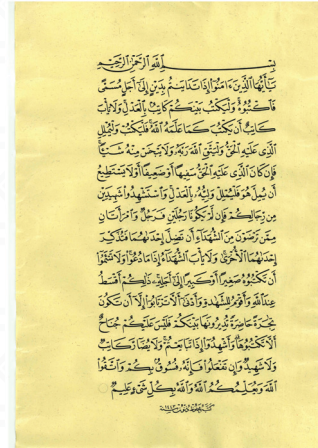 بسم الله الرحمن الرحيم
يَٰٓأَيُّهَا الَّذِينَ ءَامَنُوٓا إِذَا تَدَايَنتُم بِدَيْنٍ إِلَىٰٓ أَجَلٍ مُّسَمًّى
فَاكْتُبُوهُ وَلْيَكْتُب بَّيْنَكُمْ كَاتِبٌ بِالْعَدْلِ وَلَا يَأْبَ
كَاتِبٌ أَن يَكْتُبَ كَمَا عَلَّمَهُ اللَّهُ فَلْيَكْتُبْ وَلْيُمْلِلِ
الَّذِي عَلَيْهِ الْحَقُّ وَلْيَتَّقِ اللَّهَ رَبَّهُ وَلَا يَبْخَسْ مِنْهُ شَيْـًٔا
فَإِن كَانَ الَّذِي عَلَيْهِ الْحَقُّ سَفِيهًا أَوْ ضَعِيفًا أَوْ لَا يَسْتَطِيعُ
أَن يُمِلَّ هُوَ فَلْيُمْلِلْ وَلِيُّهُ بِالْعَدْلِ وَاسْتَشْهِدُوا شَهِيدَيْنِ
مِن رِّجَالِكُمْ فَإِن لَّمْ يَكُونَا رَجُلَيْنِ فَرَجُلٌ وَامْرَأَتَانِ
مِمَّن تَرْضَوْنَ مِنَ الشُّهَدَآءِ أَن تَضِلَّ إِحْدَىٰهُمَا فَتُذَكِّرَ
إِحْدَىٰهُمَا الْأُخْرَىٰ وَلَا يَأْبَ الشُّهَدَآءُ إِذَا مَا دُعُوا وَلَا تَسْـَٔمُوٓا
أَن تَكْتُبُوهُ صَغِيرًا أَوْ كَبِيرًا إِلَىٰٓ أَجَلِهِ ذَٰلِكُمْ أَقْسَطُ
عِندَ اللَّهِ وَأَقْوَمُ لِلشَّهَٰدَةِ وَأَدْنَىٰٓ أَلَّا تَرْتَابُوٓا إِلَّآ أَن تَكُونَ
تِجَٰرَةً حَاضِرَةً تُدِيرُونَهَا بَيْنَكُمْ فَلَيْسَ عَلَيْكُمْ جُنَاحٌ
أَلَّا تَكْتُبُوهَا وَأَشْهِدُوٓا إِذَا تَبَايَعْتُمْ وَلَا يُضَآرَّ كَاتِبٌ
وَلَا شَهِيدٌ وَإِن تَفْعَلُوا فَإِنَّهُ فُسُوقٌ بِكُمْ وَاتَّقُوا
اللَّهَ وَيُعَلِّمُكُمُ اللَّهُ وَاللَّهُ بِكُلِّ شَىْءٍ عَلِيمٌ